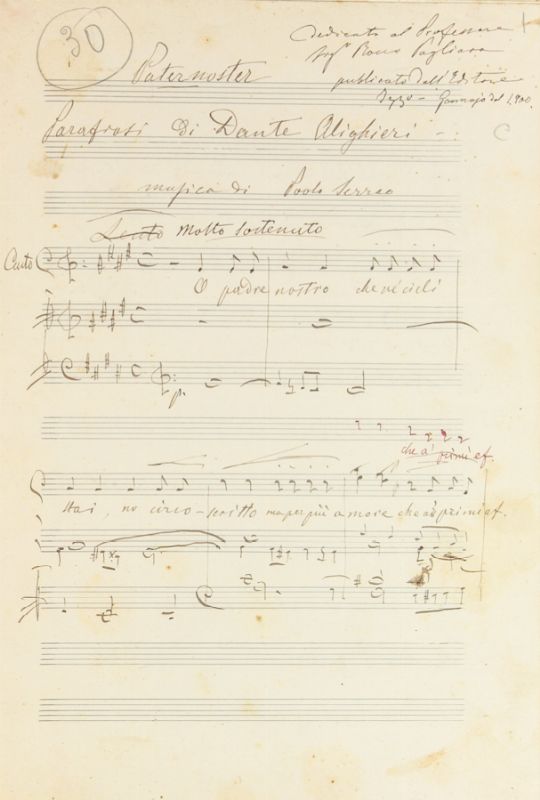 30
Dedicato al Professore
Sigr Rocco Pagliara
pubblicato dall'Editore
Gennajo del 1900
Paternoster
Parafrasi di Dante Alighieri
musica di Paolo Serrao
Lento Molto sostenuto
Canto
O padre nostro che ne' cieli
p.
che a' primi ef.
stai, no circo-scritto ma per più amore che ai primi ef.